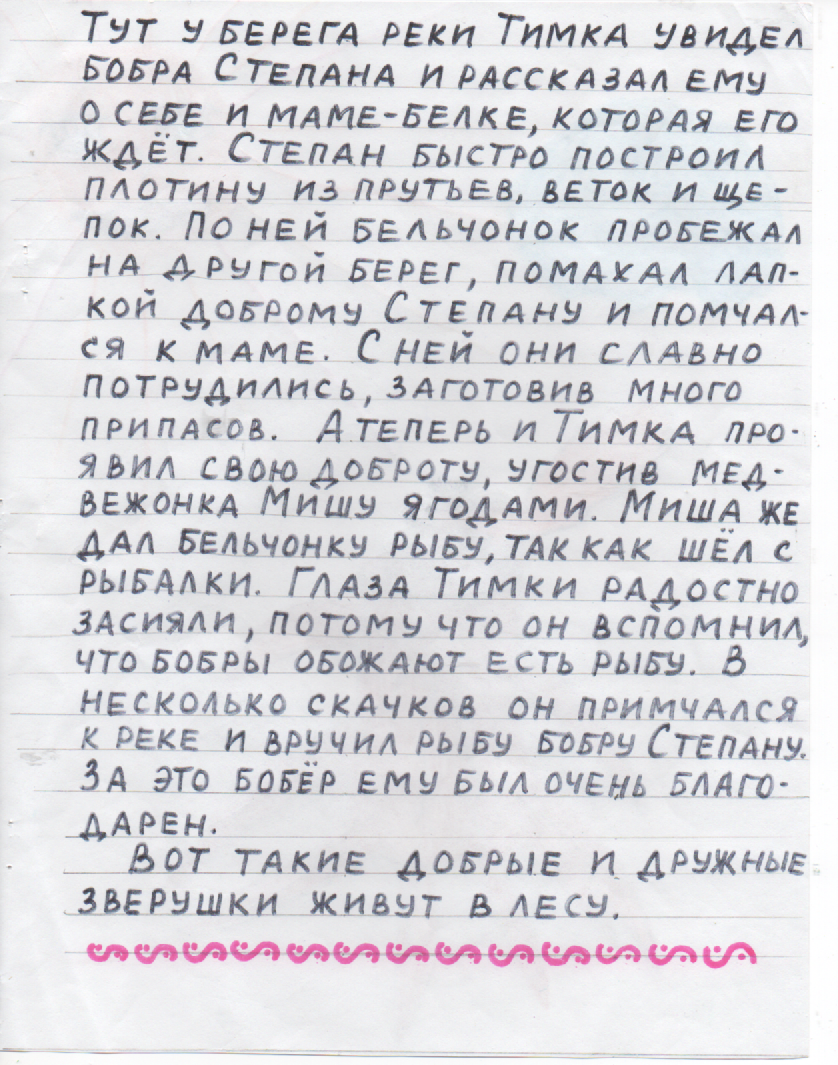 Тут у берега реки Тимка увидел
бобра Степана и рассказал ему
о себе и маме-белке, которая его
ждёт. Степан быстро построил
плотину из прутьев, веток и ще-
пок. По ней бельчонок пробежал
на другой берег, помахал лап-
кой доброму Степану и помчал-
ся к маме. С ней они славно
потрудились, заготовив много
припасов. А теперь и Тимка про-
явил свою доброту, угостив мед-
вежонка Мишу ягодами. Миша же
дал бельчонку рыбу, так как шёл с
рыбалки. Глаза Тимки радостно
засияли, потому что он вспомнил,
что бобры обожают есть рыбу. В
несколько скачков он примчался
к реке и вручил рыбу бобру Степану.
За это бобёр ему был очень благо-
дарен.
Вот такие добрые и дружные
зверушки живут в лесу.